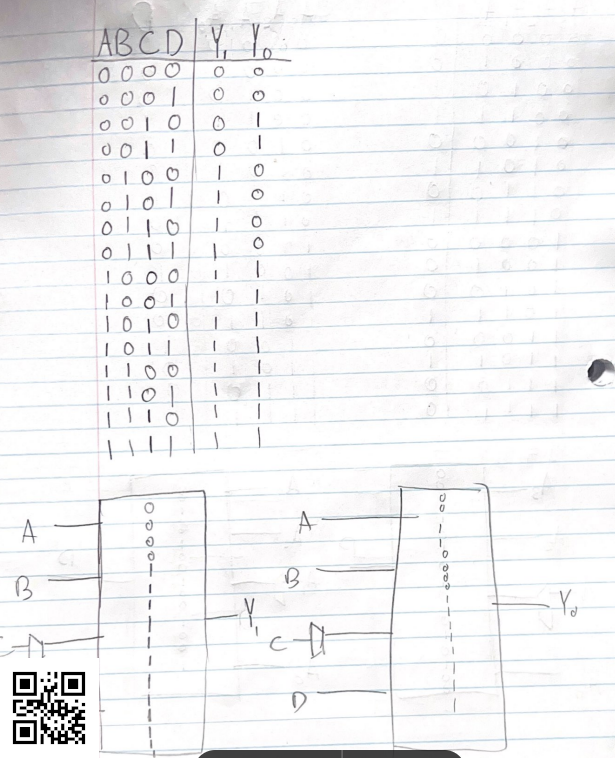 A B C D Y₁ Y₀
0 0 0 0 0 0
0 0 0 1 0 0
0 0 1 0 0 1
0 0 1 1 0 1
0 1 0 0 1 0
0 1 0 1 1 0
0 1 1 0 1 0
0 1 1 1 1 0
1 0 0 0 1 1
1 0 0 1 1 1
1 0 1 0 1 1
1 0 1 1 1 1
1 1 0 0 1 1
1 1 0 1 1 1
1 1 1 0 1 1
1 1 1 1 1 1
A
B
0
0
0
0
1
1
1
1
1
1
1
1
1
Y₁
A
B
C
D
0
0
1
1
0
0
0
0
1
1
1
1
1
1
1
1
Y₀